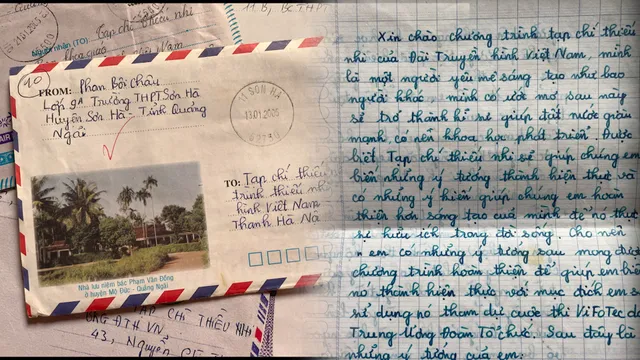 Người nhận (TO)
Tạp chí thiếu nhi
11B,
10
FROM: Phan Bội Châu
Lớp 9A Trường THPT Sơn Hà
Huyện Sơn Hà - Tỉnh Quảng
Ngãi
SƠN HÀ
13.01.2005
TO: Tạp chí thiếu
trình thiếu nhi
hình Việt Nam
Thành Hà Nộ
Nhà lưu niệm bác Phạm Văn Đồng
ở huyện Mộ Đức - Quảng Ngãi
TẠP CHÍ THIẾU NHI
43, Nguyễn
Xin chào chương trình tạp chí thiếu
nhi của Đài Truyền hình Việt Nam, mình
là một người yêu mê sáng tạo như bao
người khác, mình có ước mơ sau này
sẽ trở thành kĩ sư giúp đất nước giàu
mạnh có nền khoa học phát triển. Được
biết Tạp chí thiếu nhi sẽ giúp chúng em
biến những ý tưởng thành hiện thực và
có những ý kiến giúp chúng em hoàn
thiện hơn sáng tạo của mình để nó thực
sự hữu ích trong đời sống. Cho nên
em có những ý tưởng sau mong được
chương trình hoàn thiện để giúp em biến
nó thành hiện thực với mục đích em sẽ
sử dụng nó tham dự cuộc thi ViFoTec do
Trung Ương Đoàn Tổ chức. Sau đây là
những ý tưởng của em: